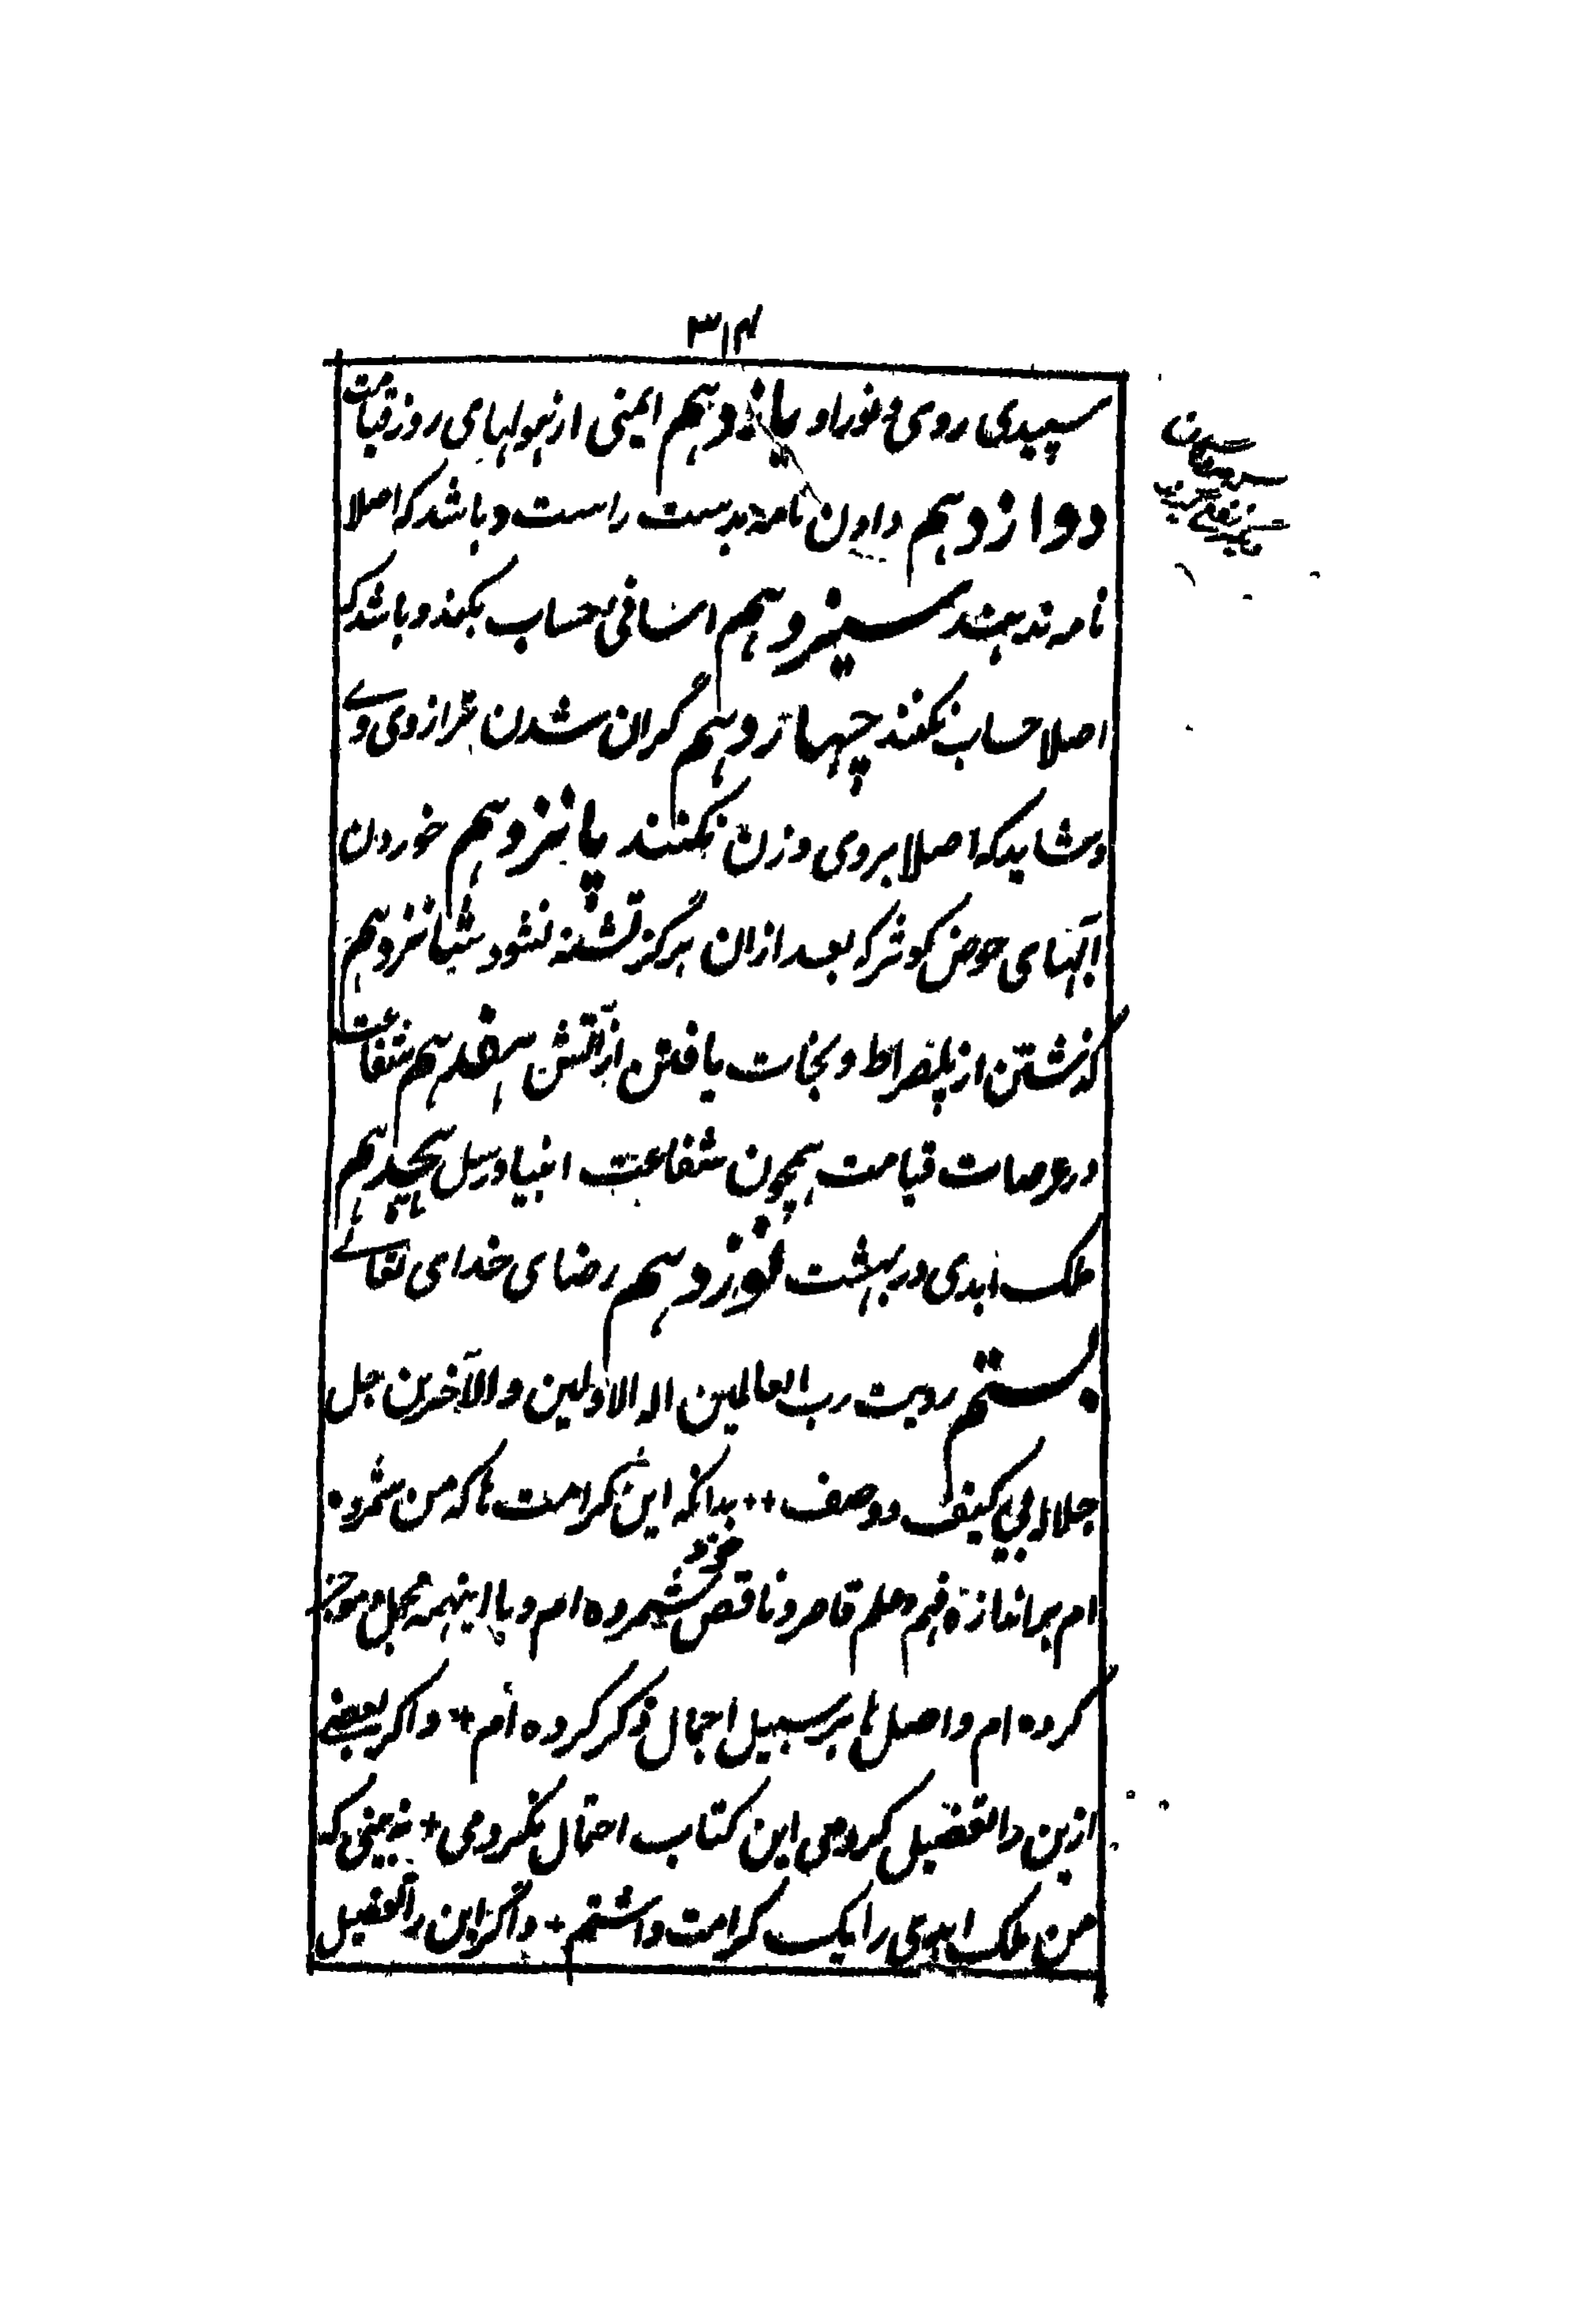 ۳۱۴
سپیدی روی و نور او یازدهم ایمنی از هولهای روز قیامت
دوازدهم دادن نامه بدست راست و باشد که اصلا
نامه ندهند سیزدهم حساب بکنند و باشد که
اصلا حساب نکنند چهاردهم گران شدن ترازوی وے
و شاید که اصلا بروی وزن نکنند پانزدهم خوردن
آبهای حوض کوثر که بعد ازان هرگز تشنه نشود شانزدهم
گذشتن از پلصراط و نجات یافتن از آتش هفدهم شفاعت
در عرصات قیامت همچون شفاعت انبیا و رسل هجدهم
ملک ابدی در بهشت نوزدهم رضای خدای تعالے
بستم رویت رب العالمین اله الاولین والآخرین جل
جلاله بی کیف و وصف ++ بدانکه این کرامت ها که من شمرده
ام بر اندازه فهم و علم قاصر و ناقص خود شمرده ام و با اینهمه مجمل و موجز
کرده ام و اصل ها بر سبیل اجمال ذکر کرده ام + و اگر بعضے
ازین را تفضیل کردمی این کتاب احتمال نکردی + نه بینی که
من ملک ابدی را یک کرامت داشتم + و اگر این را تفضیل